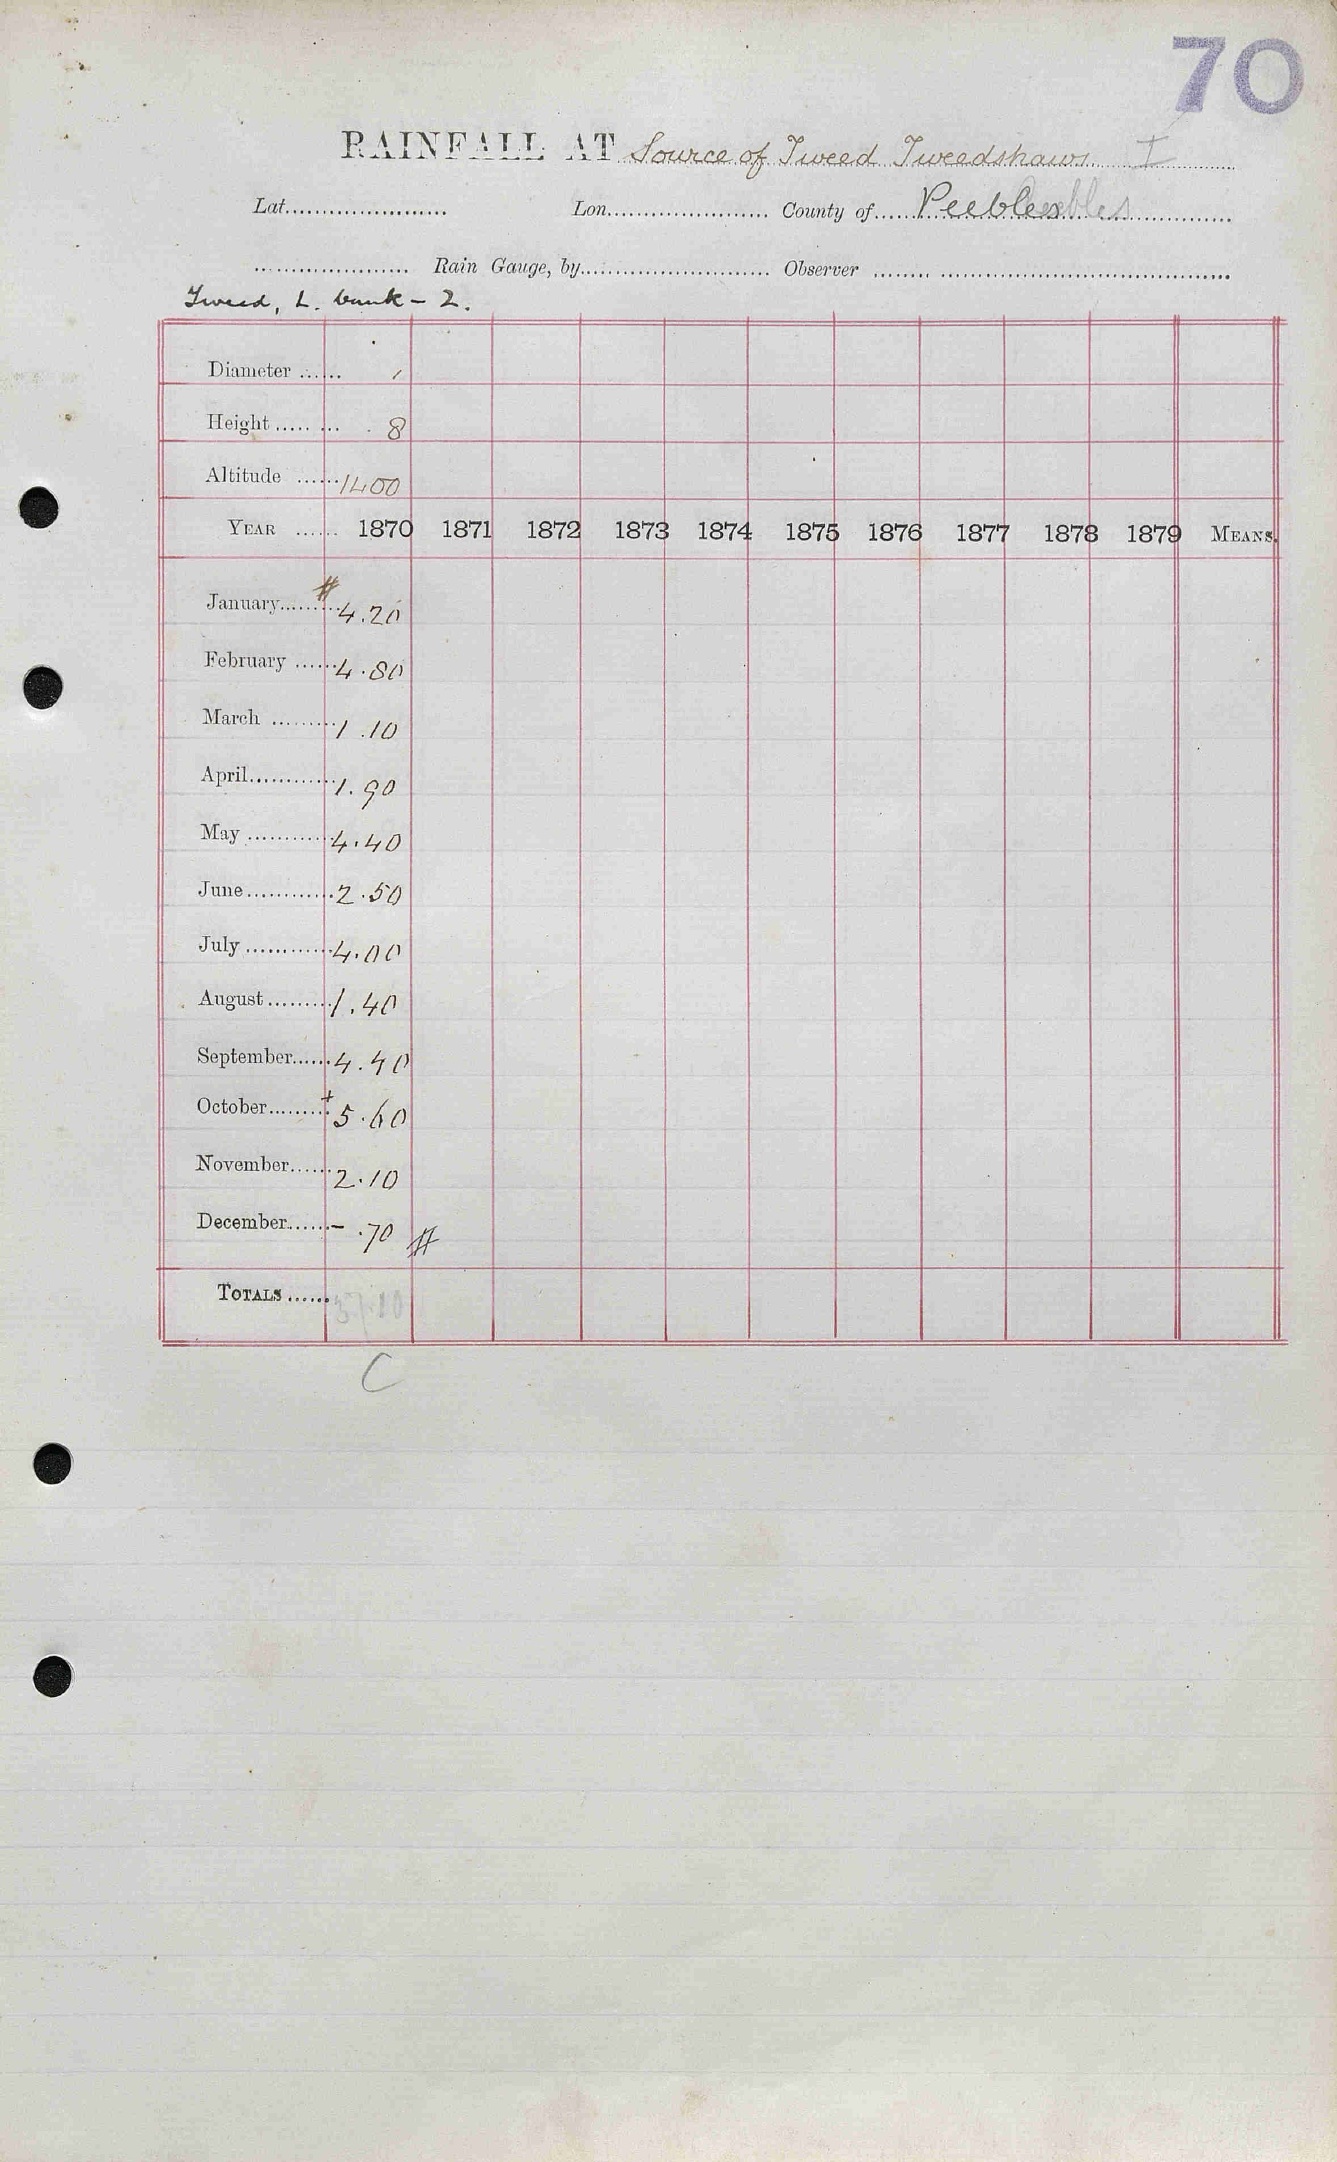 70
RAINFALL AT Source of Tweed Tweedshaws I
Lat...................... Lon....................... County of..... Peebles
..................... Rain Gauge, by.......................... Observer ........
Tweed, L. bank – 2.
Diameter ...... 1
Height ..... ... 8
Altitude ...... 1400
YEAR ...... 1870 1871 1872 1873 1874 1875 1876 1877 1878 1879 MEANS.
January......... # 4.20
February ...... 4.80
March ......... 1.10
April............ 1.90
May ............ 4.40
June............ 2.50
July ............ 4.00
August......... 1.40
September...... 4.40
October......... + 5.60
November...... 2.10
December...... – .70 #
TOTALS ...... 37.10
C